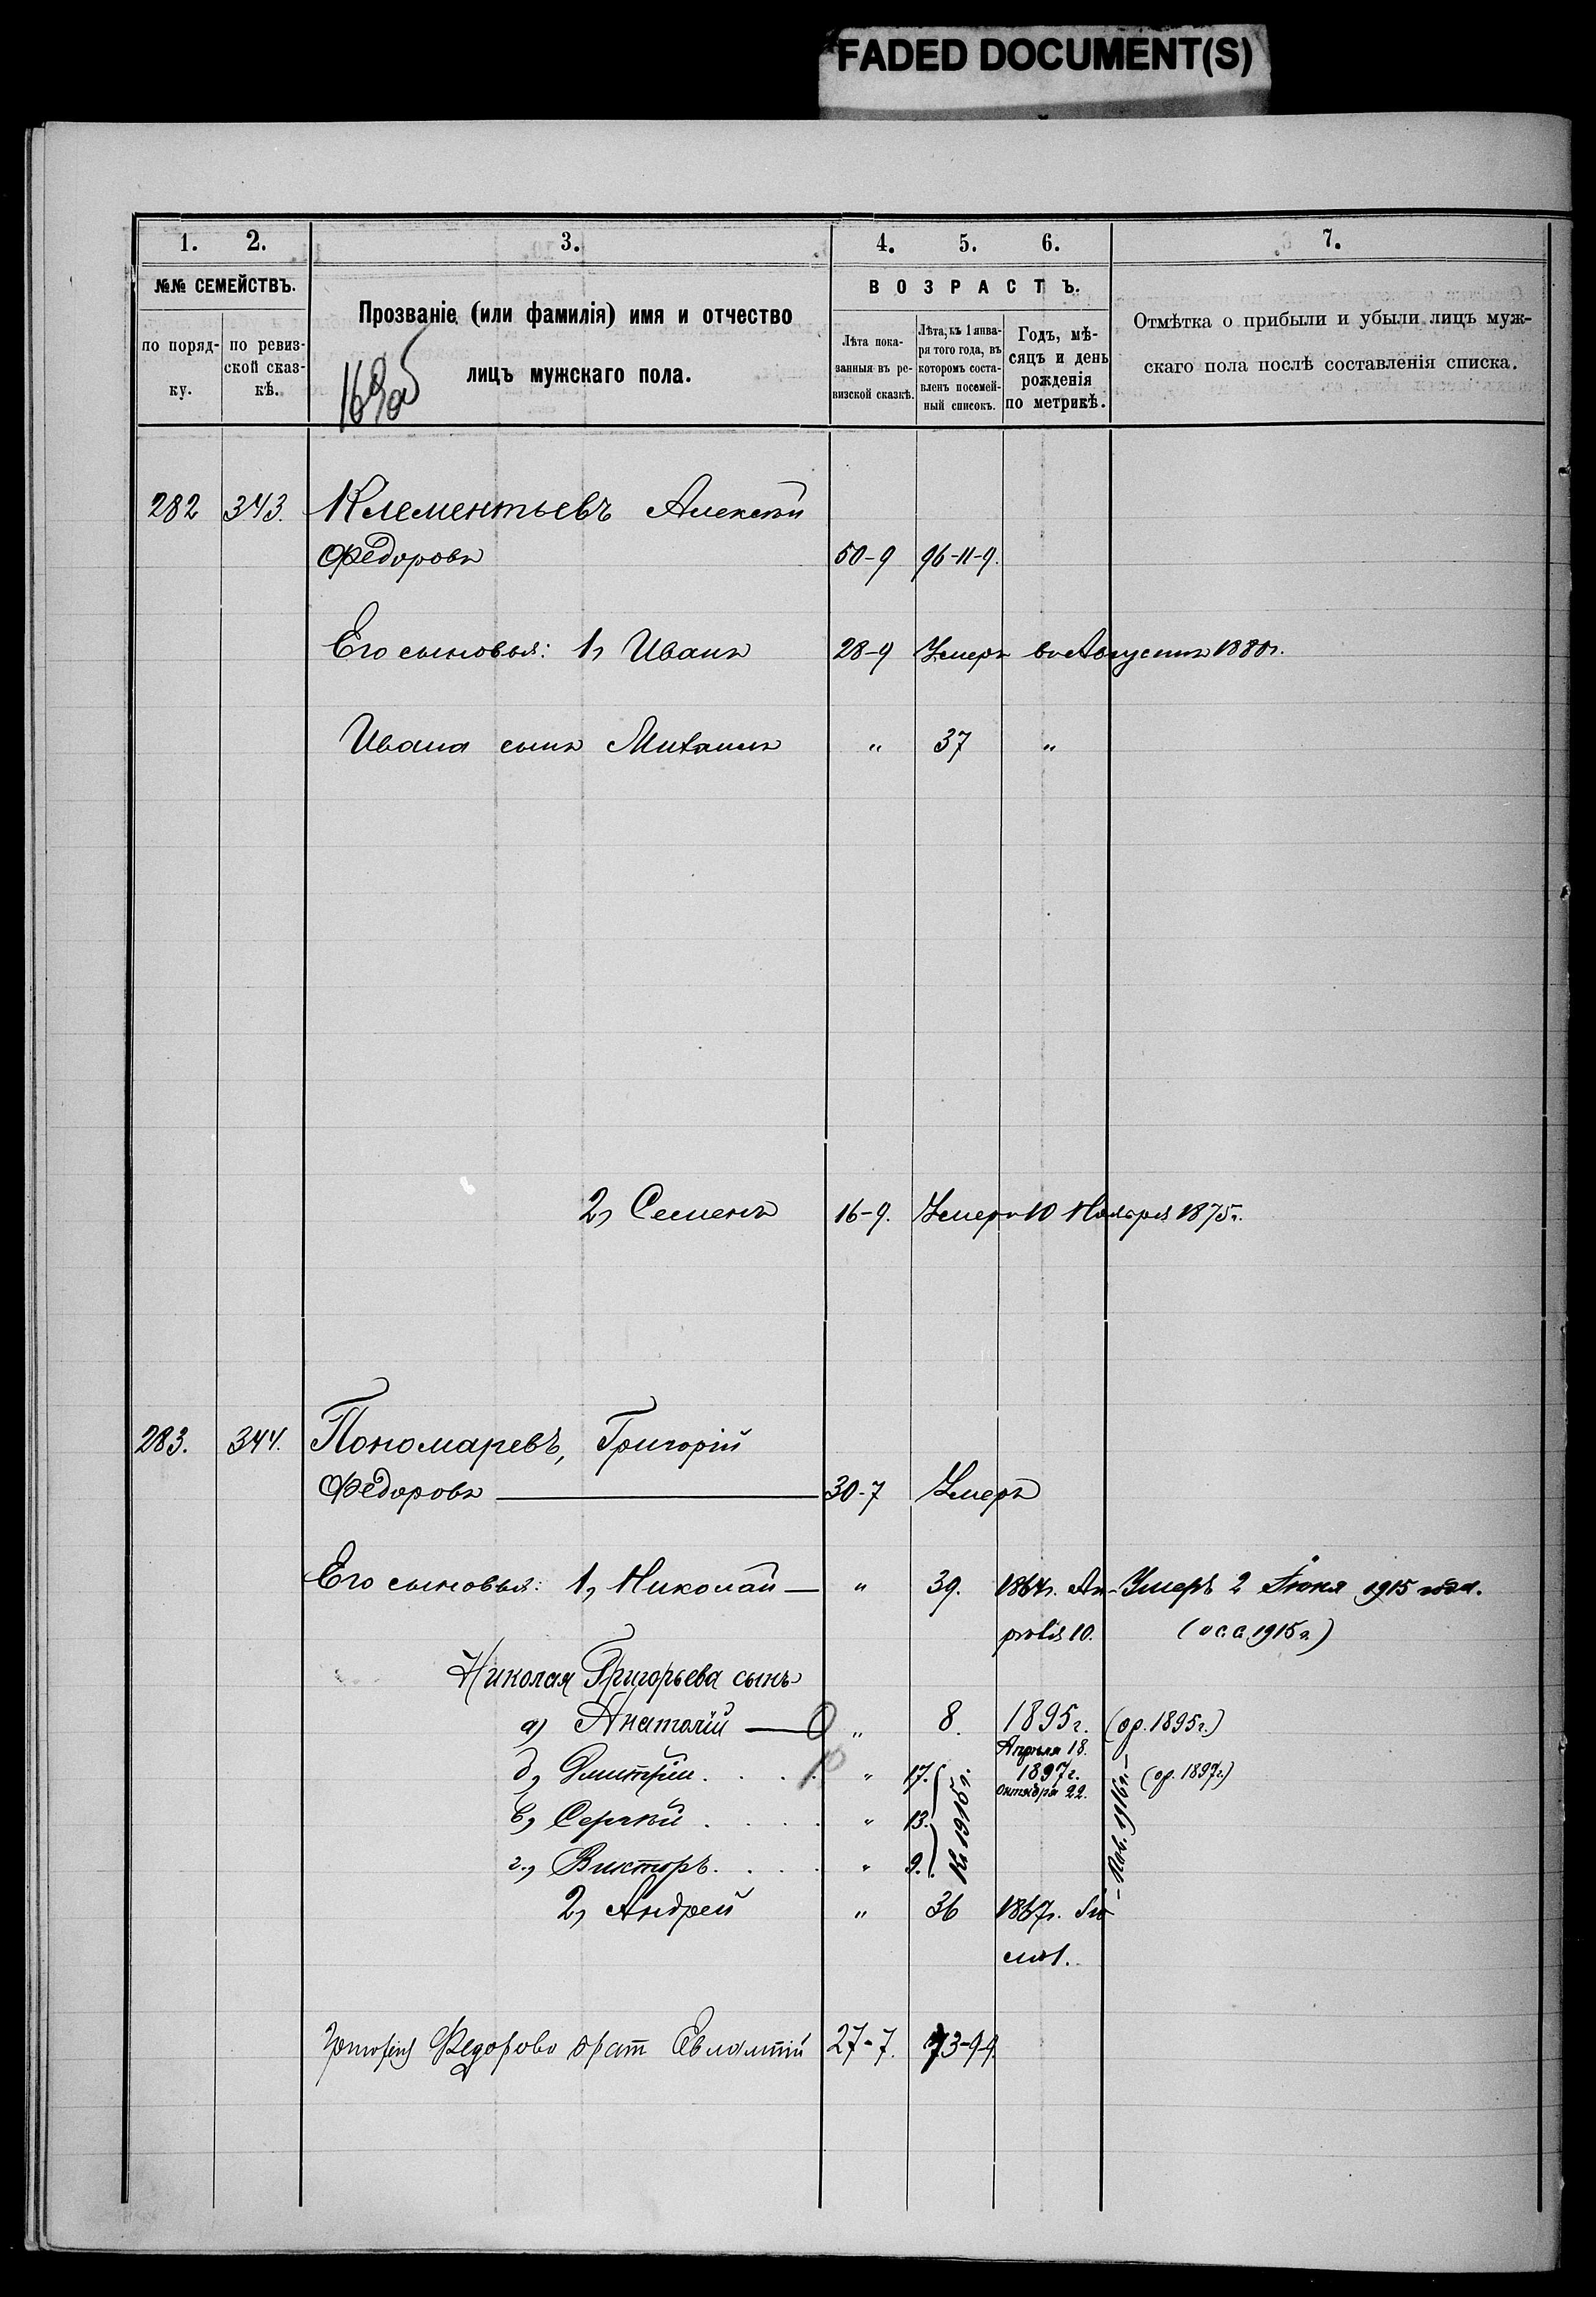 FADED DOCUMENT(S)
1. 2. 3. 4. 5. 6. 7.
№№ СЕМЕЙСТВЪ.
по поряд-
ку.
по ревиз-
ской сказ-
кѣ.
Прозваніе (или фамилія) имя и отчество
лицъ мужскаго пола.
ВОЗРАСТЪ.
Лѣта пока-
занныя въ ре-
визской сказкѣ.
Лѣта, къ 1 янва-
ря того года, въ
которомъ соста-
вленъ посемей-
ный списокъ.
Годъ, мѣ-
сяцъ и день
рожденія
по метрикѣ.
Отмѣтка о прибыли и убыли лицъ муж-
скаго пола послѣ составленія списка.
282 343. Клементьевъ Алексѣй
Федоровъ 50-9 96-11-9.
Его сыновья: 1, Иванъ 28-9 Умеръ въ Августѣ 1880г.
Ивана сынъ Михаилъ " 37 "
2, Семенъ 16-9. Умеръ 10 Ноября 1875г.
283. 344. Пономаревъ, Григорій
Федоровъ 30-7 Умеръ
Его сыновья: 1, Николай " 39. 1864г. Ап- Умеръ 2 Іюня 1915 года.
рѣля 10. 1915г.)
Николая Григорьева сынъ
а) Анатолій " 8. 1895г. (ор. 1895г.)
Апрѣля 18.
б, Дмитрій . . . " 17. 1897г. (ор. 1897г.)
Октября 22.
в, Сергѣй . . . " 13. Къ 1915г.
г., Викторъ . . . " 9. 1916г.
2, Андрей " 36 1867г. Ію-
ля 1.
Федорова братъ Евлампій 27-7. 73-9-9.